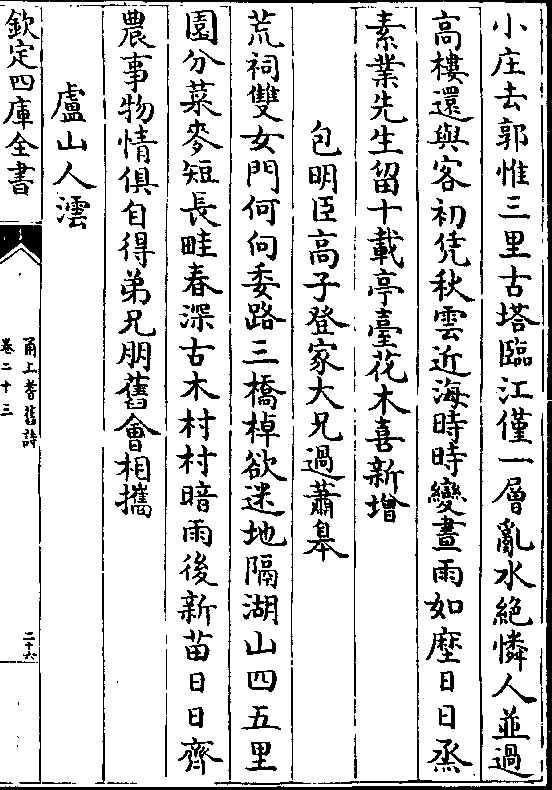 小庄去郭惟三里古塔臨江僅一層亂水絶憐人並過
高樓還與客初凭秋雲近海時時變晝雨如塵日日烝
素業先生留十載亭臺花木喜新增
包明臣高子登家大兄過蕭皐
荒祠雙女門何向委路三橋棹欲迷地隔湖山四五里
園分菜麥短長畦春深古木村村暗雨後新苗日日齊
農事物情俱自得弟兄朋舊會相攜
盧山人澐
欽定四庫全書
甬上耆舊詩
卷二十三
二十六